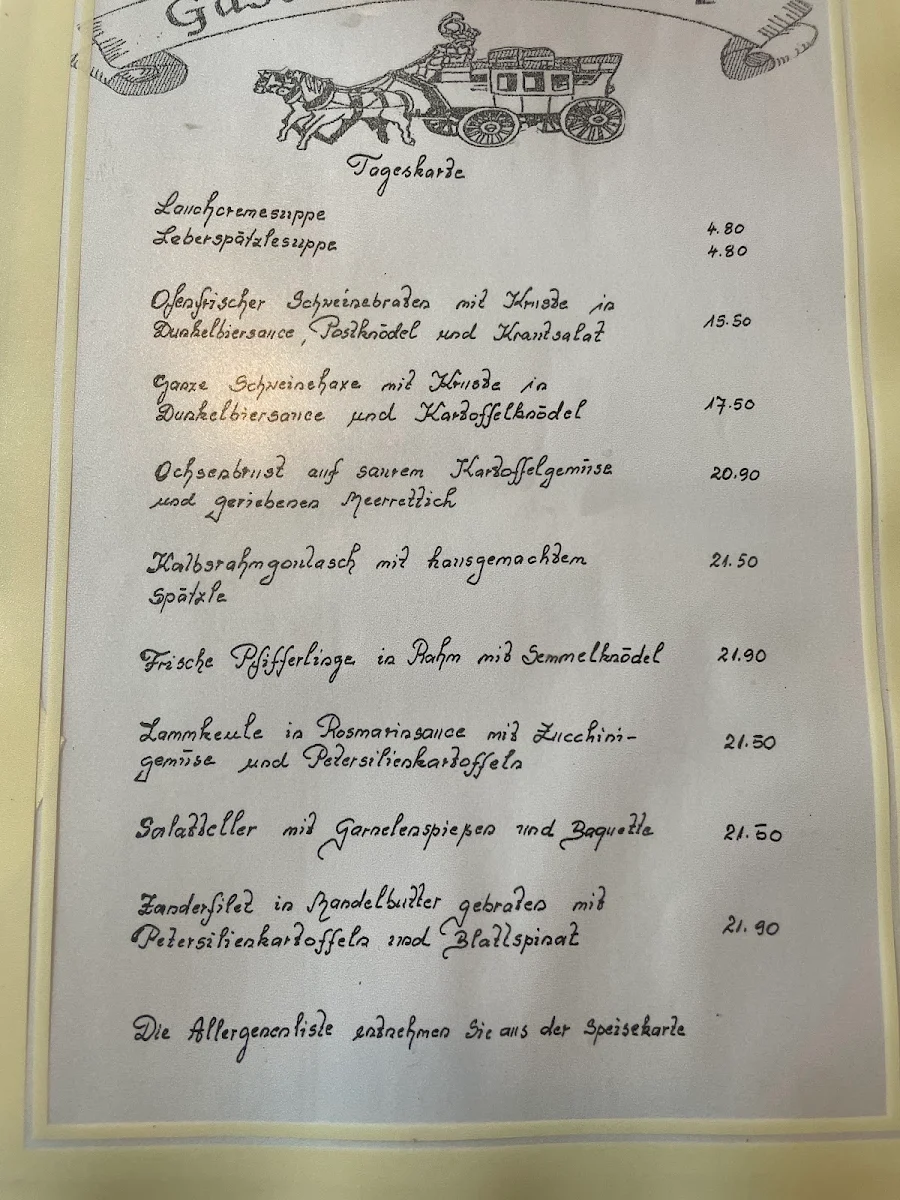 Tageskarte
Lauchcremesuppe
4.80
Leberspätzlesuppe
4.80
Ofenfrischer Schweinebraten mit Kruste in
Dunkelbiersauce, Postknödel und Krautsalat
15.50
Ganze Schweinehaxe mit Kruste in
Dunkelbiersauce und Kartoffelknödel
17.50
Ochsenbrust auf saurem Kartoffelgemüse
20.90
und geriebenen Meerrettich
Kalbsrahmgoulasch mit hausgemachtem
21.50
Spätzle
Frische Pfifferlinge in Rahm mit Semmelknödel
21.90
Lammkeule in Rosmarinsauce mit Zucchini-
21.50
gemüse und Petersilienkartoffeln
Salatteller mit Garnelenspießen und Baguette
21.50
Zanderfilet in Mandelbutter gebraten mit
21.90
Petersilienkartoffeln und Blattspinat
Die Allergenenliste entnehmen Sie aus der Speisekarte